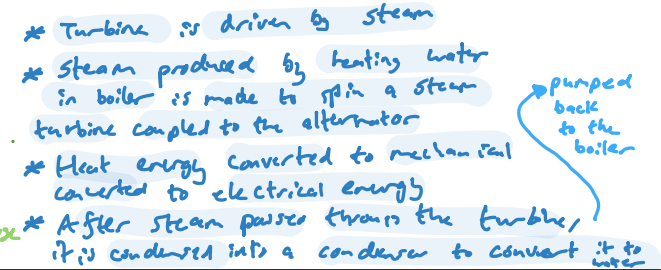 * Turbine is driven by steam
* Steam produced by heating water
in boiler is made to spin a steam
turbine coupled to the alternator
* Heat energy converted to mechanical
converted to electrical energy
* After steam passes through the turbine,
it is condensed into a condenser to convert it to
water
pumped
back
to the
boiler